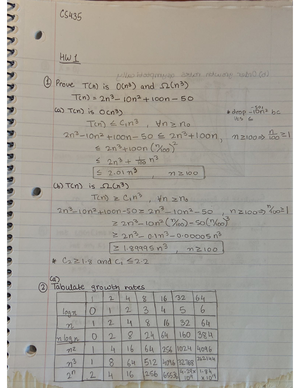 CS435
HW 1
① Prove T(n) is O(n³) and Ω(n³)
T(n) = 2n³ - 10n² + 100n - 50
(a) T(n) is O(n³)
T(n) ≤ C₁n³, ∀n ≥ n₀
* drop -10n² bc
2n³ - 10n² + 100n - 50 ≤ 2n³ + 100n, n ≥ 100 ⇒ n/100 ≥ 1
≤ 2n³ + 100n (n/100)²
≤ 2n³ + 1/100 n³
≤ 2.01 n³, n ≥ 100
(b) T(n) is Ω(n³)
T(n) ≥ C₂n³, ∀n ≥ n₀
2n³ - 10n² + 100n - 50 ≥ 2n³ - 10n² - 50, n ≥ 100 ⇒ n/100 ≥ 1
≥ 2n³ - 10n² (n/100) - 50 (n/100)³
≥ 2n³ - 0.1n³ - 0.00005n³
≥ 1.89995n³, n ≥ 100
* C₂ ≥ 1.8 and C₁ ≤ 2.2
(a)
② Tabulate growth rates
1 2 4 8 16 32 64
log n 0 1 2 3 4 5 6
n 1 2 4 8 16 32 64
n log n 0 2 8 24 64 160 384
n² 1 4 16 64 256 1024 4096
n³ 1 8 64 512 4096 32768 262144
2ⁿ 2 4 16 256 65536